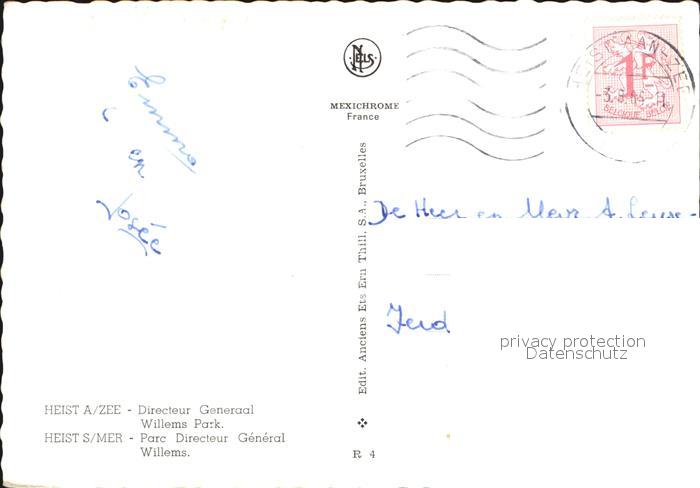 NELS
MEXICHROME
France
HEIST-AAN-ZEE
1F
BELGIQUE BELGIE
en
Josée
De Heer en Mevr A.
Edit. Anciens Ets Ern Thill, S.A., Bruxelles
privacy protection
Datenschutz
HEIST A/ZEE - Directeur Generaal
Willems Park.
HEIST S/MER - Parc Directeur Général
Willems.
R 4